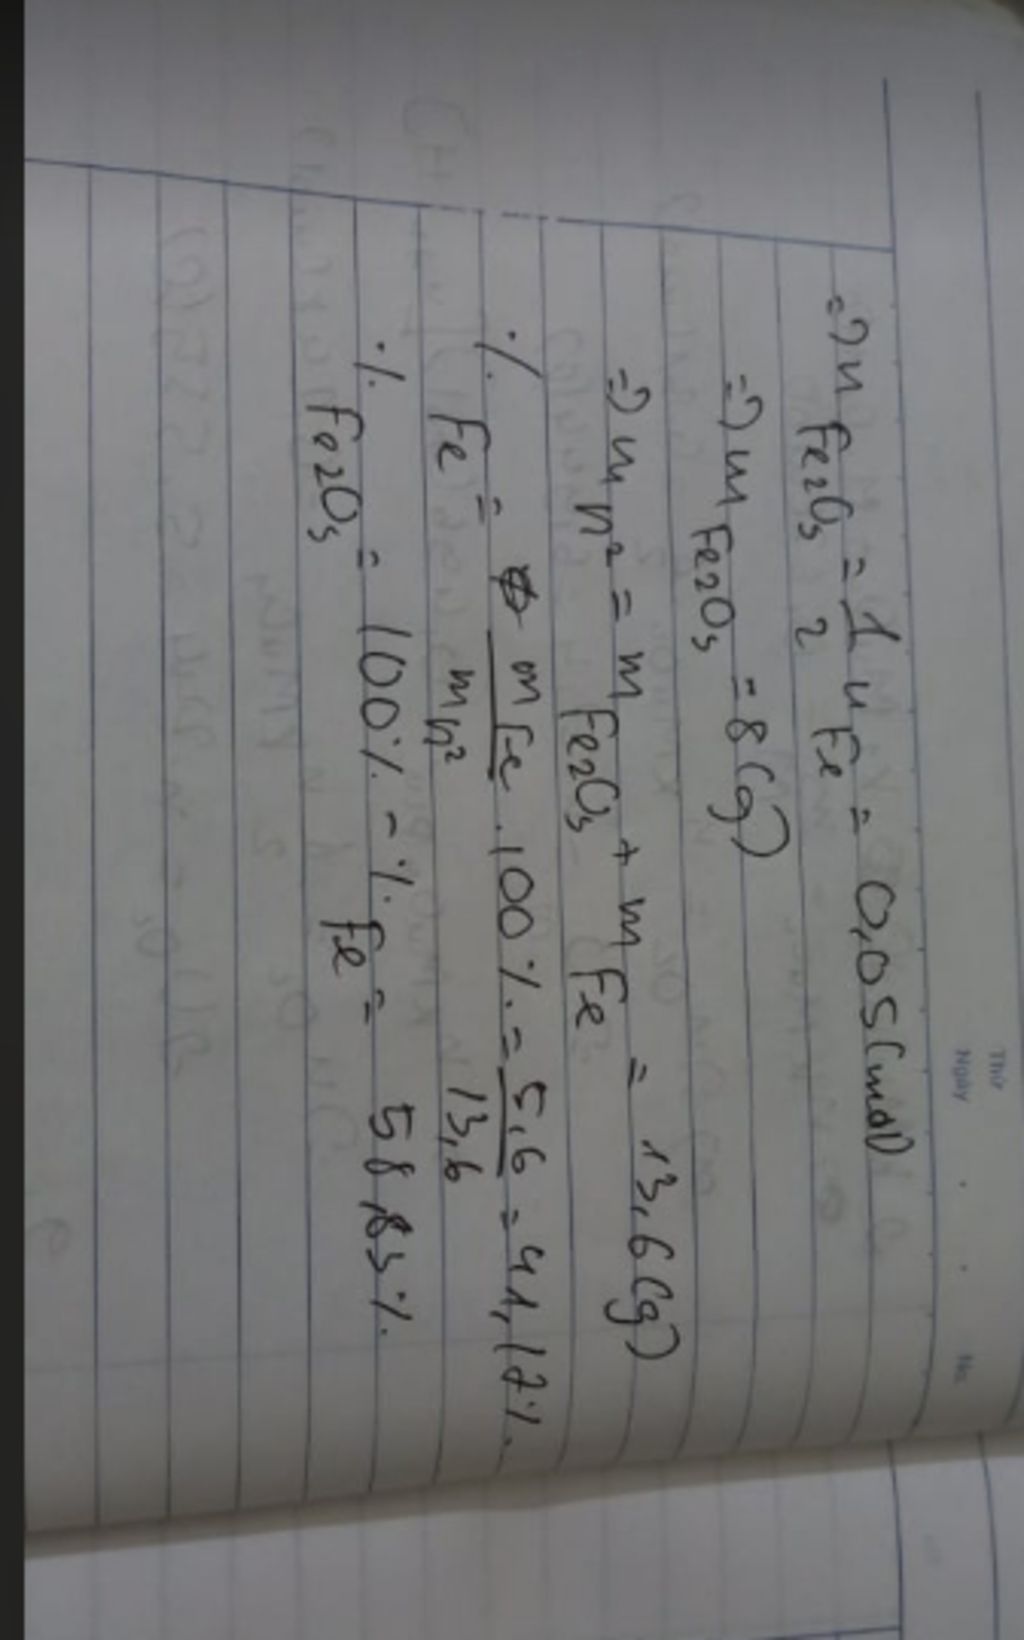 Thứ
Ngày . . No.
=> n Fe2O3 = 1/2 n Fe = 0,05 (mol)
=> m Fe2O3 = 8 (g)
=> m h² = m Fe2O3 + m Fe = 13,6 (g)
% Fe = m Fe / m h² . 100% = 5,6 / 13,6 = 41,17%.
% Fe2O3 = 100% - % Fe = 58,83%.